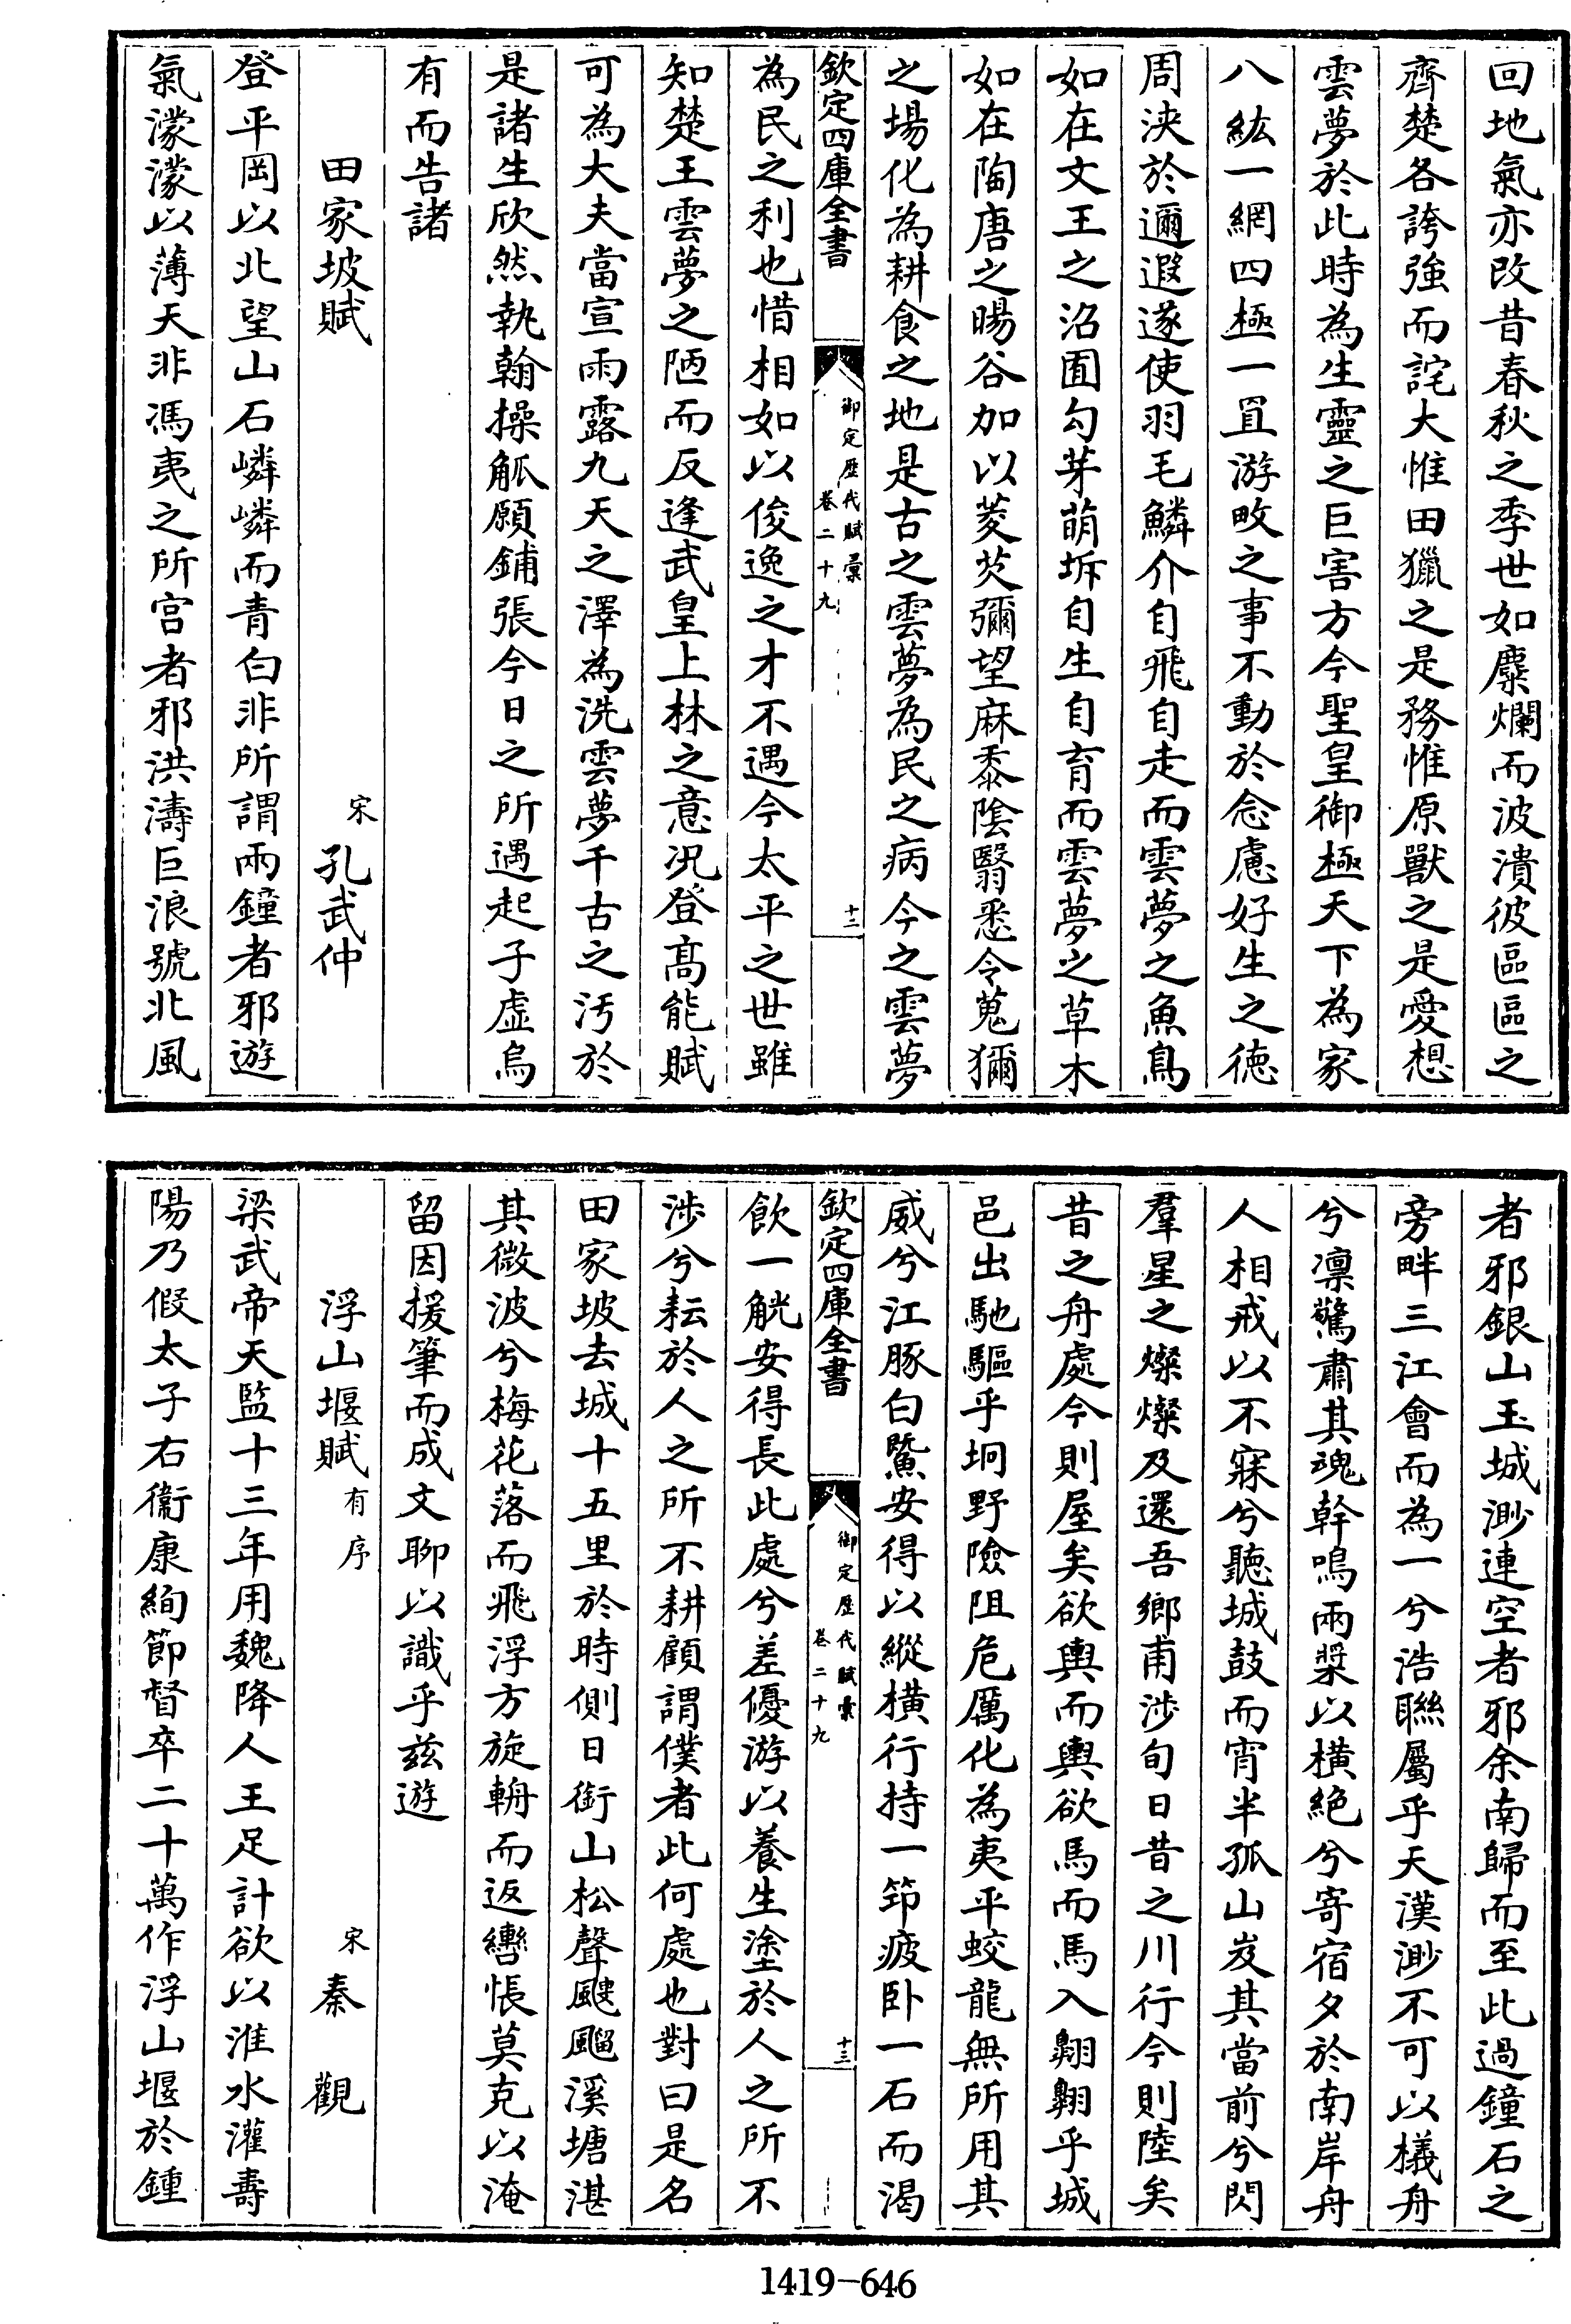 回地氣亦改昔春秋之季世如麋爛而波潰彼區區之
齊楚各誇強而詫大惟田獵之是務惟原獸之是愛想
雲夢於此時為生靈之巨害方今聖皇御極天下為家
八紘一網四極一罝游畋之事不動於念慮好生之德
周浹於邇遐遂使羽毛鱗介自飛自走而雲夢之魚鳥
如在文王之沼囿勾芽萌坼自生自育而雲夢之草木
如在陶唐之暘谷加以菱芡彌望麻黍陰翳悉令蒐獮
之場化為耕食之地是古之雲夢為民之病今之雲夢
欽定四庫全書
御定歷代賦彙
卷二十九
十二
為民之利也惜相如以俊逸之才不遇今太平之世雖
知楚王雲夢之陋而反逢武皇上林之意况登高能賦
可為大夫當宣雨露九天之澤為洗雲夢千古之汚於
是諸生欣然執翰操觚願鋪張今日之所遇起子虛烏
有而告諸
田家坡賦
宋 孔武仲
登平岡以北望山石嶙嶙而青白非所謂兩鐘者邪遊
氣濛濛以薄天非馮夷之所宮者邪洪濤巨浪號北風
者邪銀山玉城渺連空者邪余南歸而至此過鐘石之
旁畔三江會而為一兮浩聯屬乎天漢渺不可以檥舟
兮凜驚肅其魂幹嗚兩槳以橫絶兮寄宿夕於南岸舟
人相戒以不寐兮聽城鼓而宵半孤山岌其當前兮閃
羣星之燦燦及還吾鄉甫涉旬日昔之川行今則陸矣
昔之舟處今則屋矣欲輿而輿欲馬而馬入翺翺乎城
邑出馳驅乎坰野險阻危厲化為夷平蛟龍無所用其
威兮江豚白鱀安得以縱横行持一笻疲卧一石而渴
欽定四庫全書
御定歷代賦彙
卷二十九
十三
飲一觥安得長此處兮差優游以養生塗於人之所不
涉兮耘於人之所不耕顧謂僕者此何處也對曰是名
田家坡去城十五里於時側日銜山松聲颼飀溪塘湛
其微波兮梅花落而飛浮方旋輈而返轡悵莫克以淹
留因援筆而成文聊以識乎兹遊
浮山堰賦有序
宋 秦觀
梁武帝天監十三年用魏降人王足計欲以淮水灌壽
陽乃假太子右衞康絢節督卒二十萬作浮山堰於鍾
1419-646